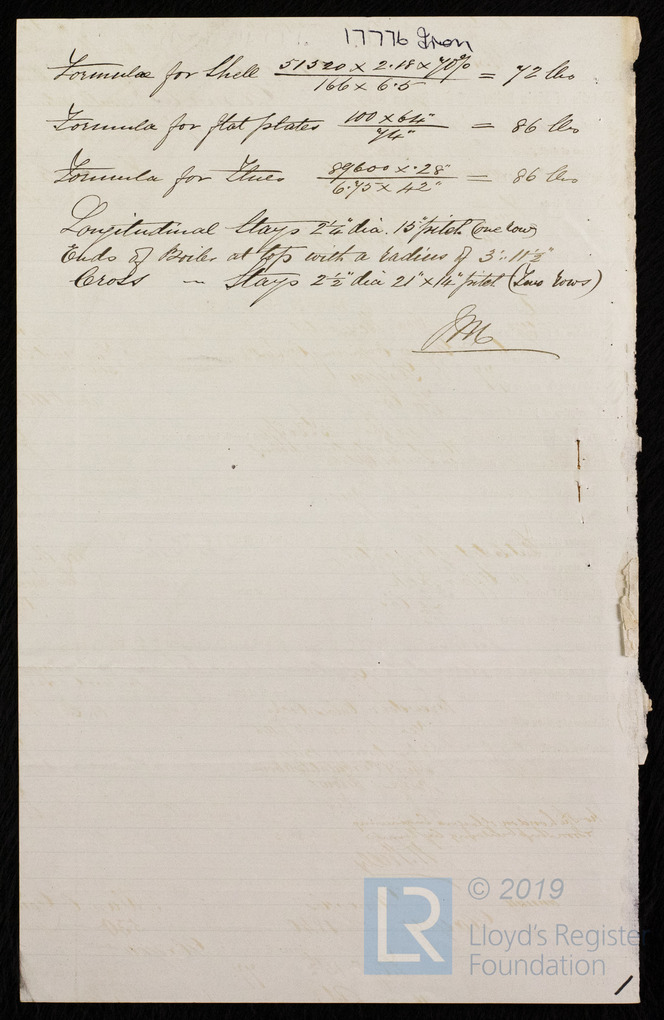 17776 Iron
Formula for Shell 51520 x 2.18 x 70% / 166 x 6.5 = 72 lbs
Formula for flat plates 100 x 64" / 74" = 86 lbs
Formula for Flues 89600 x .28" / 6.75 x 42" = 86 lbs
Longitudinal Stays 2¼" dia. 15" pitch (one row)
Ends of Boiler at top with a radius of 3'. 11½"
Cross — Stays 2½" dia 21" x 14" pitch (Two rows)
JM
© 2019
LR
Lloyd's Register
Foundation